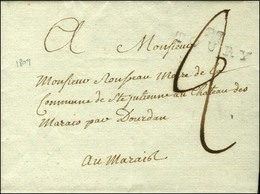 A Monsieur
1807
Monsieur Rousseau Maire de la
Commune de Ste Julienne au Château des
Marais par Dourdan
Au Marais